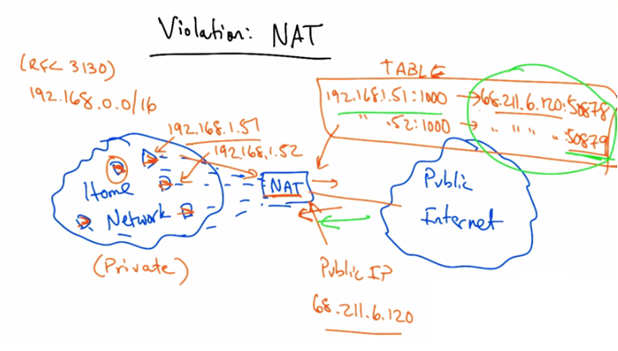 Violation: NAT
(RFC 3130)
192.168.0.0/16
TABLE
192.168.1.51:1000 → 68.211.6.120:50878
" .52:1000 → " " " . 50879
192.168.1.51
192.168.1.52
Home
Network
(Private)
NAT
Public
Internet
Public IP
68.211.6.120